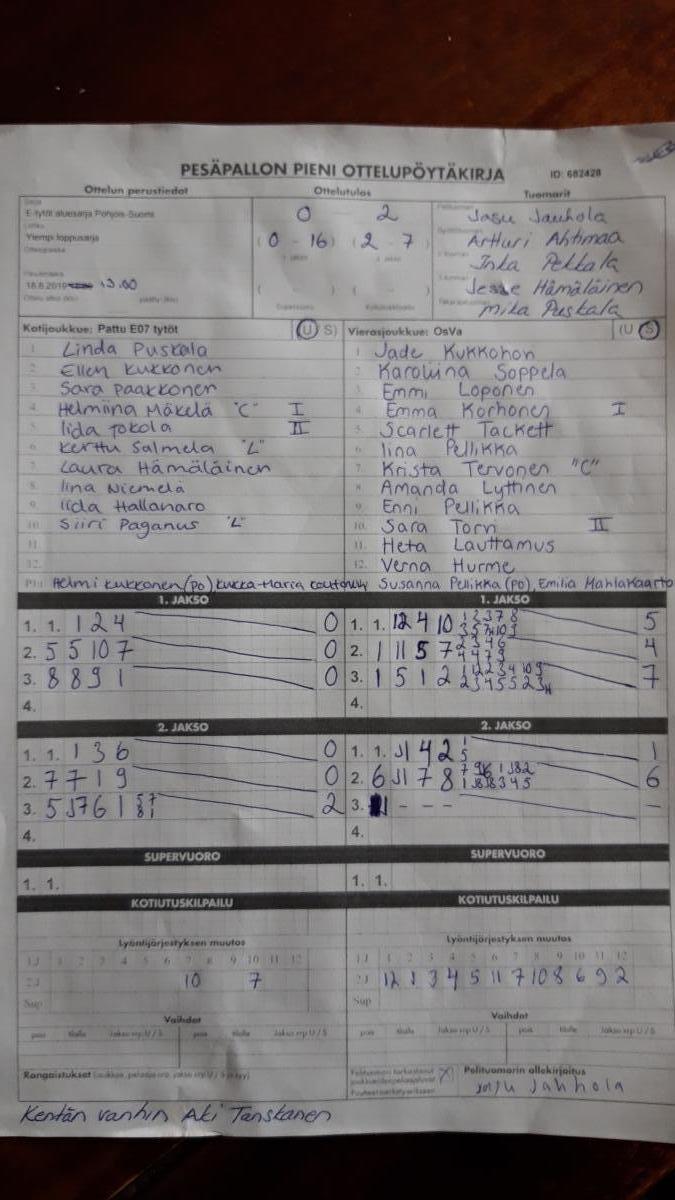 PESÄPALLON PIENI OTTELUPÖYTÄKIRJA ID: 682428
Ottelun perustiedot Ottelutulos Tuomarit
Sarja
E-tytöt aluesarja Pohjois-Suomi
Lohko
Ylempi loppusarja
0 2
(0 - 16) (2 - 7)
18.8.2019 13.00
( - ) ( - )
Supervuoro Kotiutuskilpailu
Jasu Jauhola
Artturi Ahtimaa
Inka Pekkala
Jesse Hämäläinen
Mika Puskala
Kotijoukkue: Pattu E07 tytöt (U S) Vierasjoukkue: OsVa (U S)
1. Linda Puskala
2. Ellen Kukkonen
3. Sara Paakkonen
4. Helmiina Mäkelä "C" I
5. Iida Jokola II
6. Kerttu Salmela "L"
7. Laura Hämäläinen
8. Iina Niemelä
9. Iida Hallanaro
10. Siiri Paganus "L"
11.
12.
1. Jade Kukkohon
2. Karoliina Soppela
3. Emmi Loponen
4. Emma Korhonen I
5. Scarlett Tackett
6. Iina Pellikka
7. Krista Tervonen "C"
8. Amanda Lyttinen
9. Enni Pellikka
10. Sara Torn II
11. Heta Lauttamus
12. Verna Hurme
Helmi Kukkonen (PO), Kukka-Maria
Susanna Pellikka (PO), Emilia Mahlakaarto
1. JAKSO 1. JAKSO
1. 1. 1 2 4 0
2. 5 5 10 7 0
3. 8 8 9 1 0
4.
1. 1. 12 4 10 5
2. 1 11 5 7 4
3. 1 5 1 2 7
4.
2. JAKSO 2. JAKSO
1. 1. 1 3 6 0
2. 7 7 1 9 0
3. 5 5 7 6 1 2
4.
1. 1. 11 4 2 1
2. 6 11 7 8 6
3. - - - -
4.
SUPERVUORO SUPERVUORO
1. 1. 1. 1.
KOTIUTUSKILPAILU KOTIUTUSKILPAILU
Lyöntijärjestyksen muutos Lyöntijärjestyksen muutos
1J 1 2 3 4 5 6 7 8 9 10 11 12
2J 10 7
Sup
1J 1 2 3 4 5 6 7 8 9 10 11 12
2J 12 1 3 4 5 11 7 10 8 6 9 2
Sup
Vaihdot Vaihdot
pois tilalle Jakso vrp U / S pois tilalle Jakso vrp U / S
pois tilalle Jakso vrp U / S pois tilalle Jakso vrp U / S
Rangaistukset
X Pelituomarin allekirjoitus
Jasu Jauhola
Kentän vanhin Aki Tanskanen